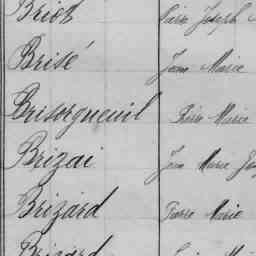 Briot Pierre Joseph
Brisé Jean Marie
Brisorgueuil Pierre Marie
Brizai Jean Marie
Brizard Pierre Marie
Brizard